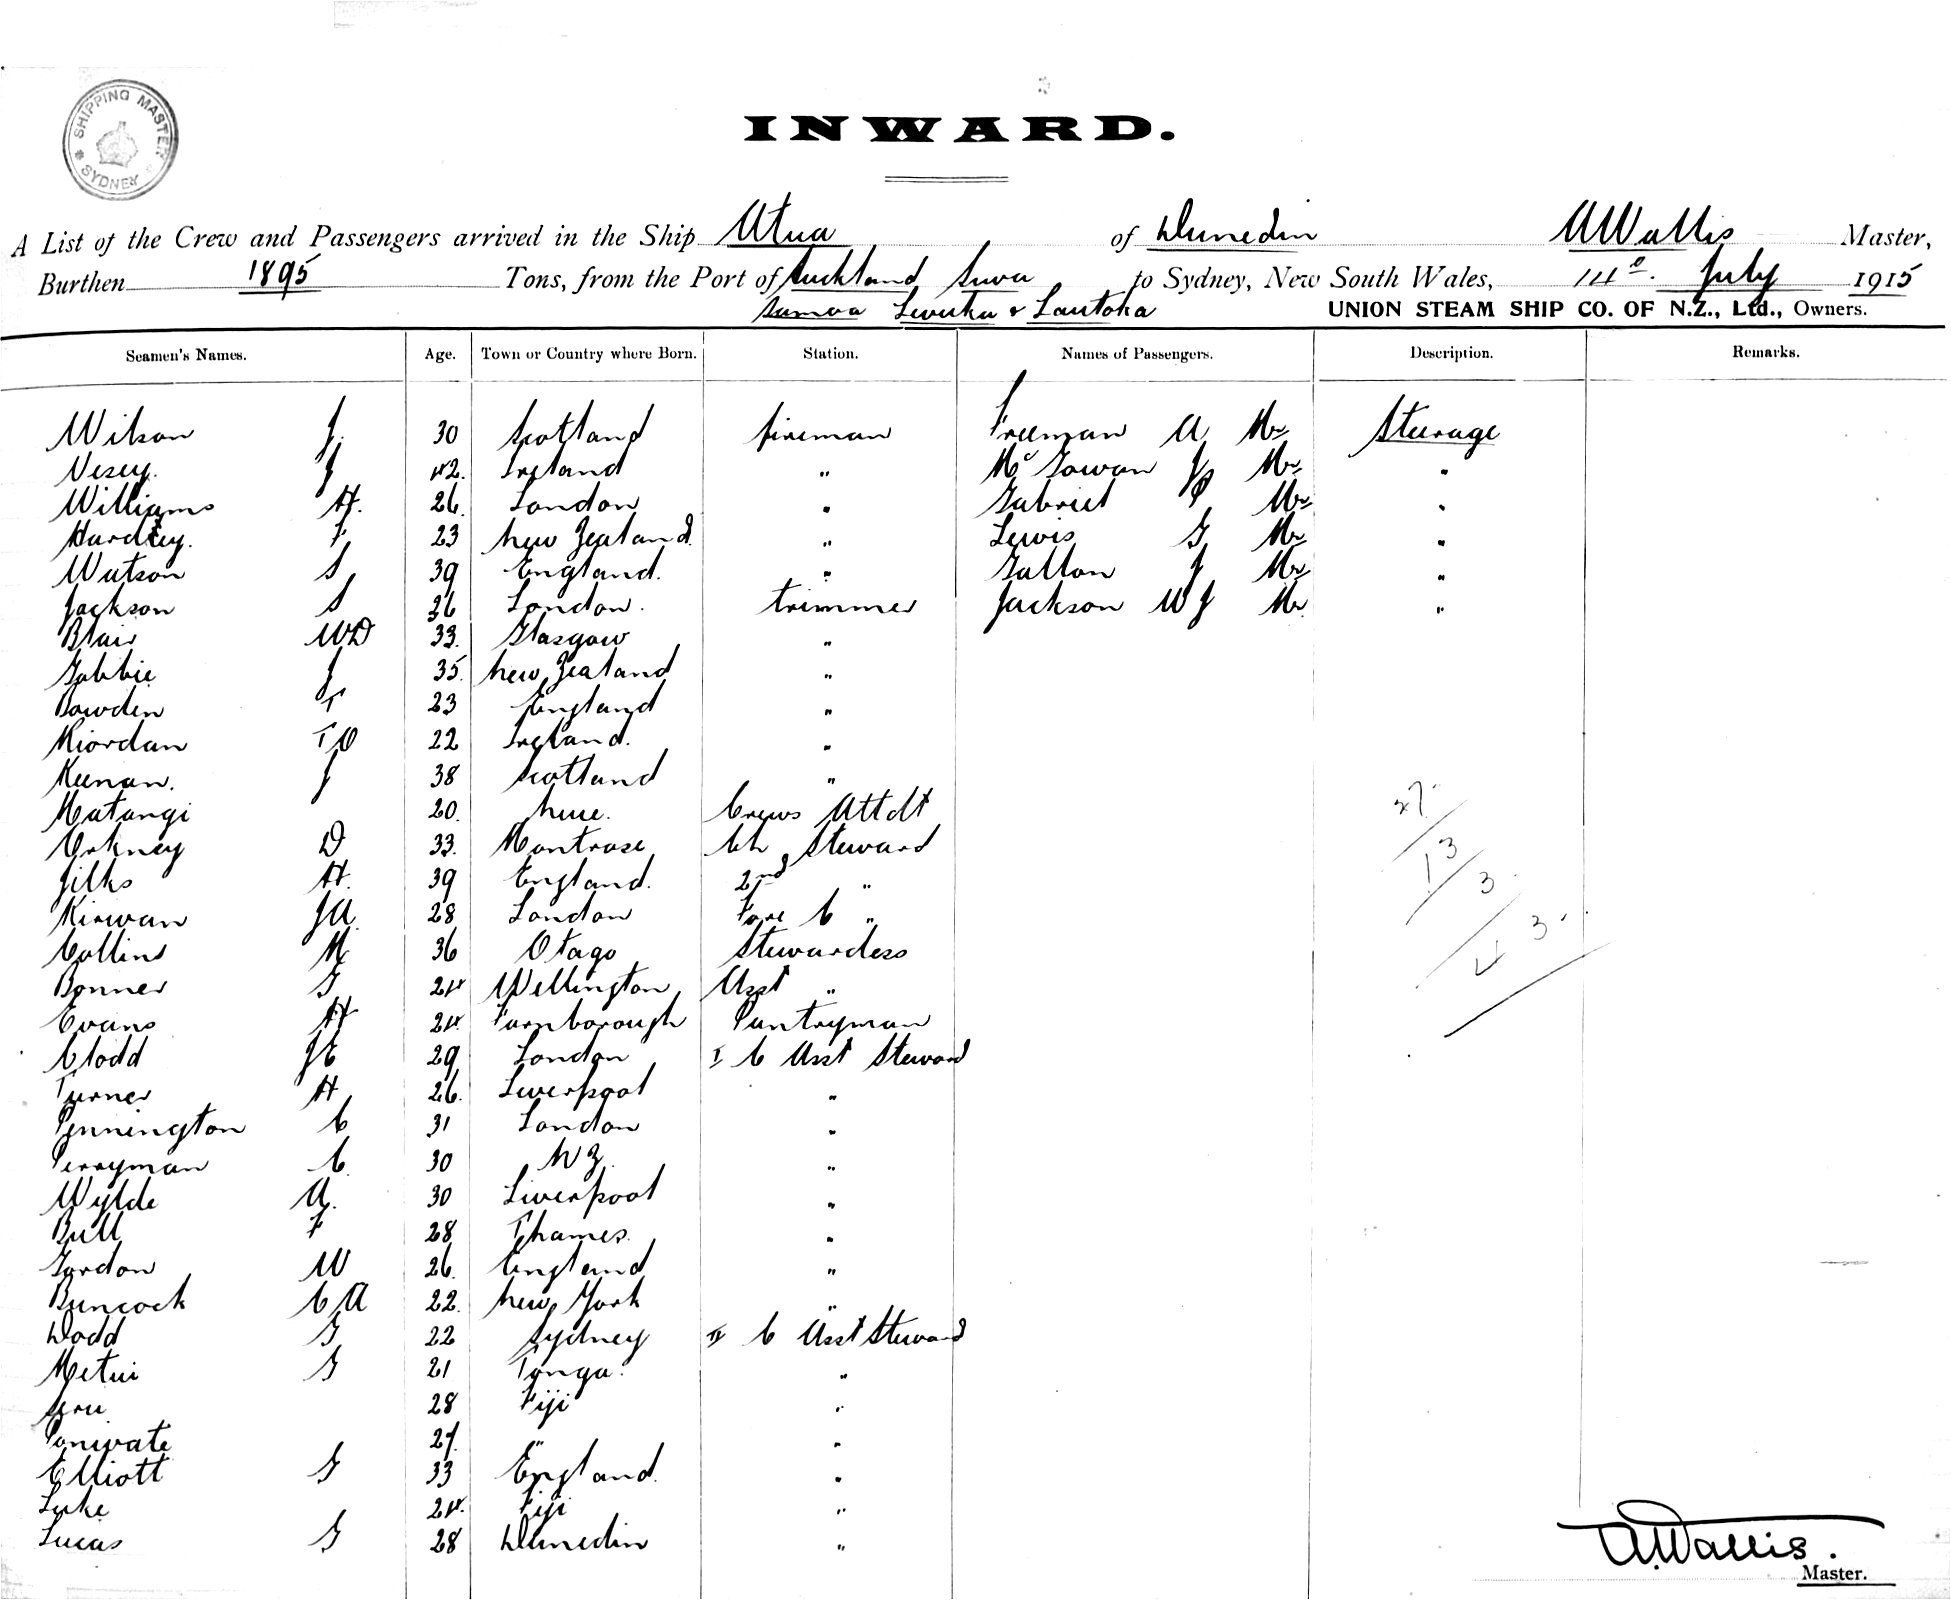 SHIPPING MASTER
SYDNEY
INWARD.
A List of the Crew and Passengers arrived in the Ship Atua of Dunedin A Wallis Master,
Burthen 1895 Tons, from the Port of Auckland Suva to Sydney, New South Wales, 14th July 1915
Samoa Levuka & Lautoka UNION STEAM SHIP CO. OF N.Z., Ltd., Owners.
Seamen's Names. Age. Town or Country where Born. Station. Names of Passengers. Description. Remarks.
Wilson J. 30 Scotland fireman Freeman A Mr Steerage
Vesey. J 42. Ireland " McGowan J Mr "
Williams H. 26. London " Gabriel P Mr "
Hardley. F 23 New Zealand " Lewis G Mr "
Watson S 39 England. " Galton J Mr "
Jackson S 26 London. trimmer Jackson W J Mr "
Blair WD 33. Glasgow "
Gabbie J 35. New Zealand "
Bowden T 23 England "
Riordan T O 22 Ireland. "
Keenan. J 38 Scotland "
Matangi 20. Niue. Crews Attdt
Orkney D 33. Montrose Ch Steward
Jilks H. 39 England. 2nd "
Kirwan JA 28 London Fore C "
Collins M 36 Otago Stewardess
Bonner G 24 Wellington Asst "
Evans H 24. Farnborough Pantryman
Clodd JE 29 London I C Asst Steward
Turner H 26. Liverpool "
Pennington C 31 London "
Perryman C. 30 NZ. "
Wylde A. 30 Liverpool "
Bull F 28 Thames. "
Gordon W 26. England "
Buncock C A 22. New York "
Dodd G 22 Sydney II C Asst Steward
Metui G 21 Tonga. "
28 Fiji "
Ponivate 27. " "
Elliott G 33 England. "
Luke 24. Fiji "
Lucas G 28 Dunedin "
27.
13
3
43.
A. Wallis.
Master.